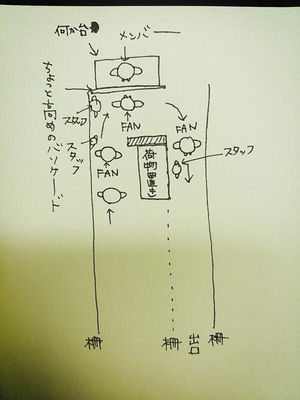 何か台
メンバー
ちょっと高めのバリケード
スタッフ
スタッフ
FAN
FAN
FAN
スタッフ
荷物置き
柵
柵
出口
柵